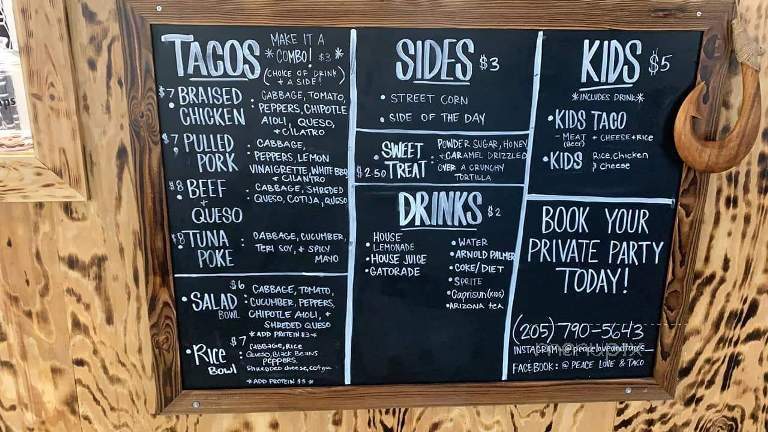 TACOS
MAKE IT A
*COMBO! $3*
(CHOICE OF DRINK
+ A SIDE!)
$7 BRAISED
CHICKEN
: CABBAGE, TOMATO,
PEPPERS, CHIPOTLE
AIOLI, QUESO,
+ CILATRO
$7 PULLED
PORK
: CABBAGE,
PEPPERS, LEMON
VINAIGRETTE, WHITE BBQ
+ CILANTRO
$8 BEEF
+
QUESO
: CABBAGE, SHREDED
QUESO, COTIJA, QUESO
$8 TUNA
POKE
: CABBAGE, CUCUMBER,
TERI SOY, + SPICY
MAYO
$6
• SALAD
BOWL
: CABBAGE, TOMATO,
CUCUMBER, PEPPERS,
CHIPOTLE AIOLI, +
SHREDED QUESO
*ADD PROTEIN $3*
$7
• Rice
Bowl
: CABBAGE, RICE
QUESO, BLACK BEANS
PEPPERS,
Shredded cheese,
*ADD PROTEIN $3*
SIDES $3
• STREET CORN
• SIDE OF THE DAY
• SWEET
TREAT
$2.50
: POWDER SUGAR, HONEY
+ CARAMEL DRIZZLED
OVER A CRUNCHY
TORTILLA
DRINKS $2
• HOUSE
LEMONADE
• HOUSE JUICE
• GATORADE
• WATER
• ARNOLD PALMER
• COKE/DIET
• SPRITE
• Caprisun (KIDS)
• ARIZONA TEA
KIDS $5
*INCLUDES DRINK*
• KIDS TACO
- MEAT + CHEESE + RICE
(Beef)
• KIDS Rice, Chicken
& Cheese
BOOK YOUR
PRIVATE PARTY
TODAY!
(205) 790-5643
INSTAGRAM: @peaceloveandtacos
FACEBOOK: @ PEACE LOVE & TACO
menupix